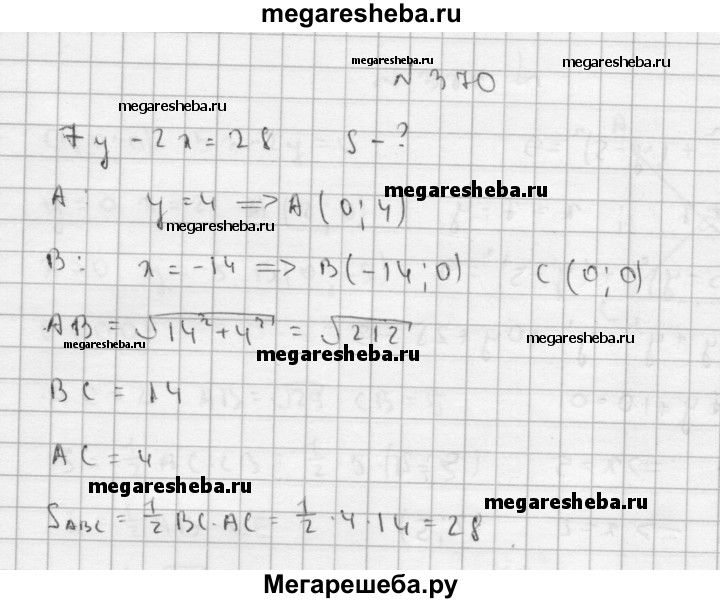 megaresheba.ru
megaresheba.ru megaresheba.ru
N 370
megaresheba.ru
7y - 2x = 28 S - ?
megaresheba.ru
A: y = 4 => A (0; 4)
megaresheba.ru
B: x = -14 => B(-14; 0) C (0; 0)
AB = √14²+4² = √212
megaresheba.ru megaresheba.ru megaresheba.ru
BC = 14
AC = 4
megaresheba.ru megaresheba.ru
S_ABC = 1/2 BC · AC = 1/2 · 4 · 14 = 28
Мегарешеба.ру